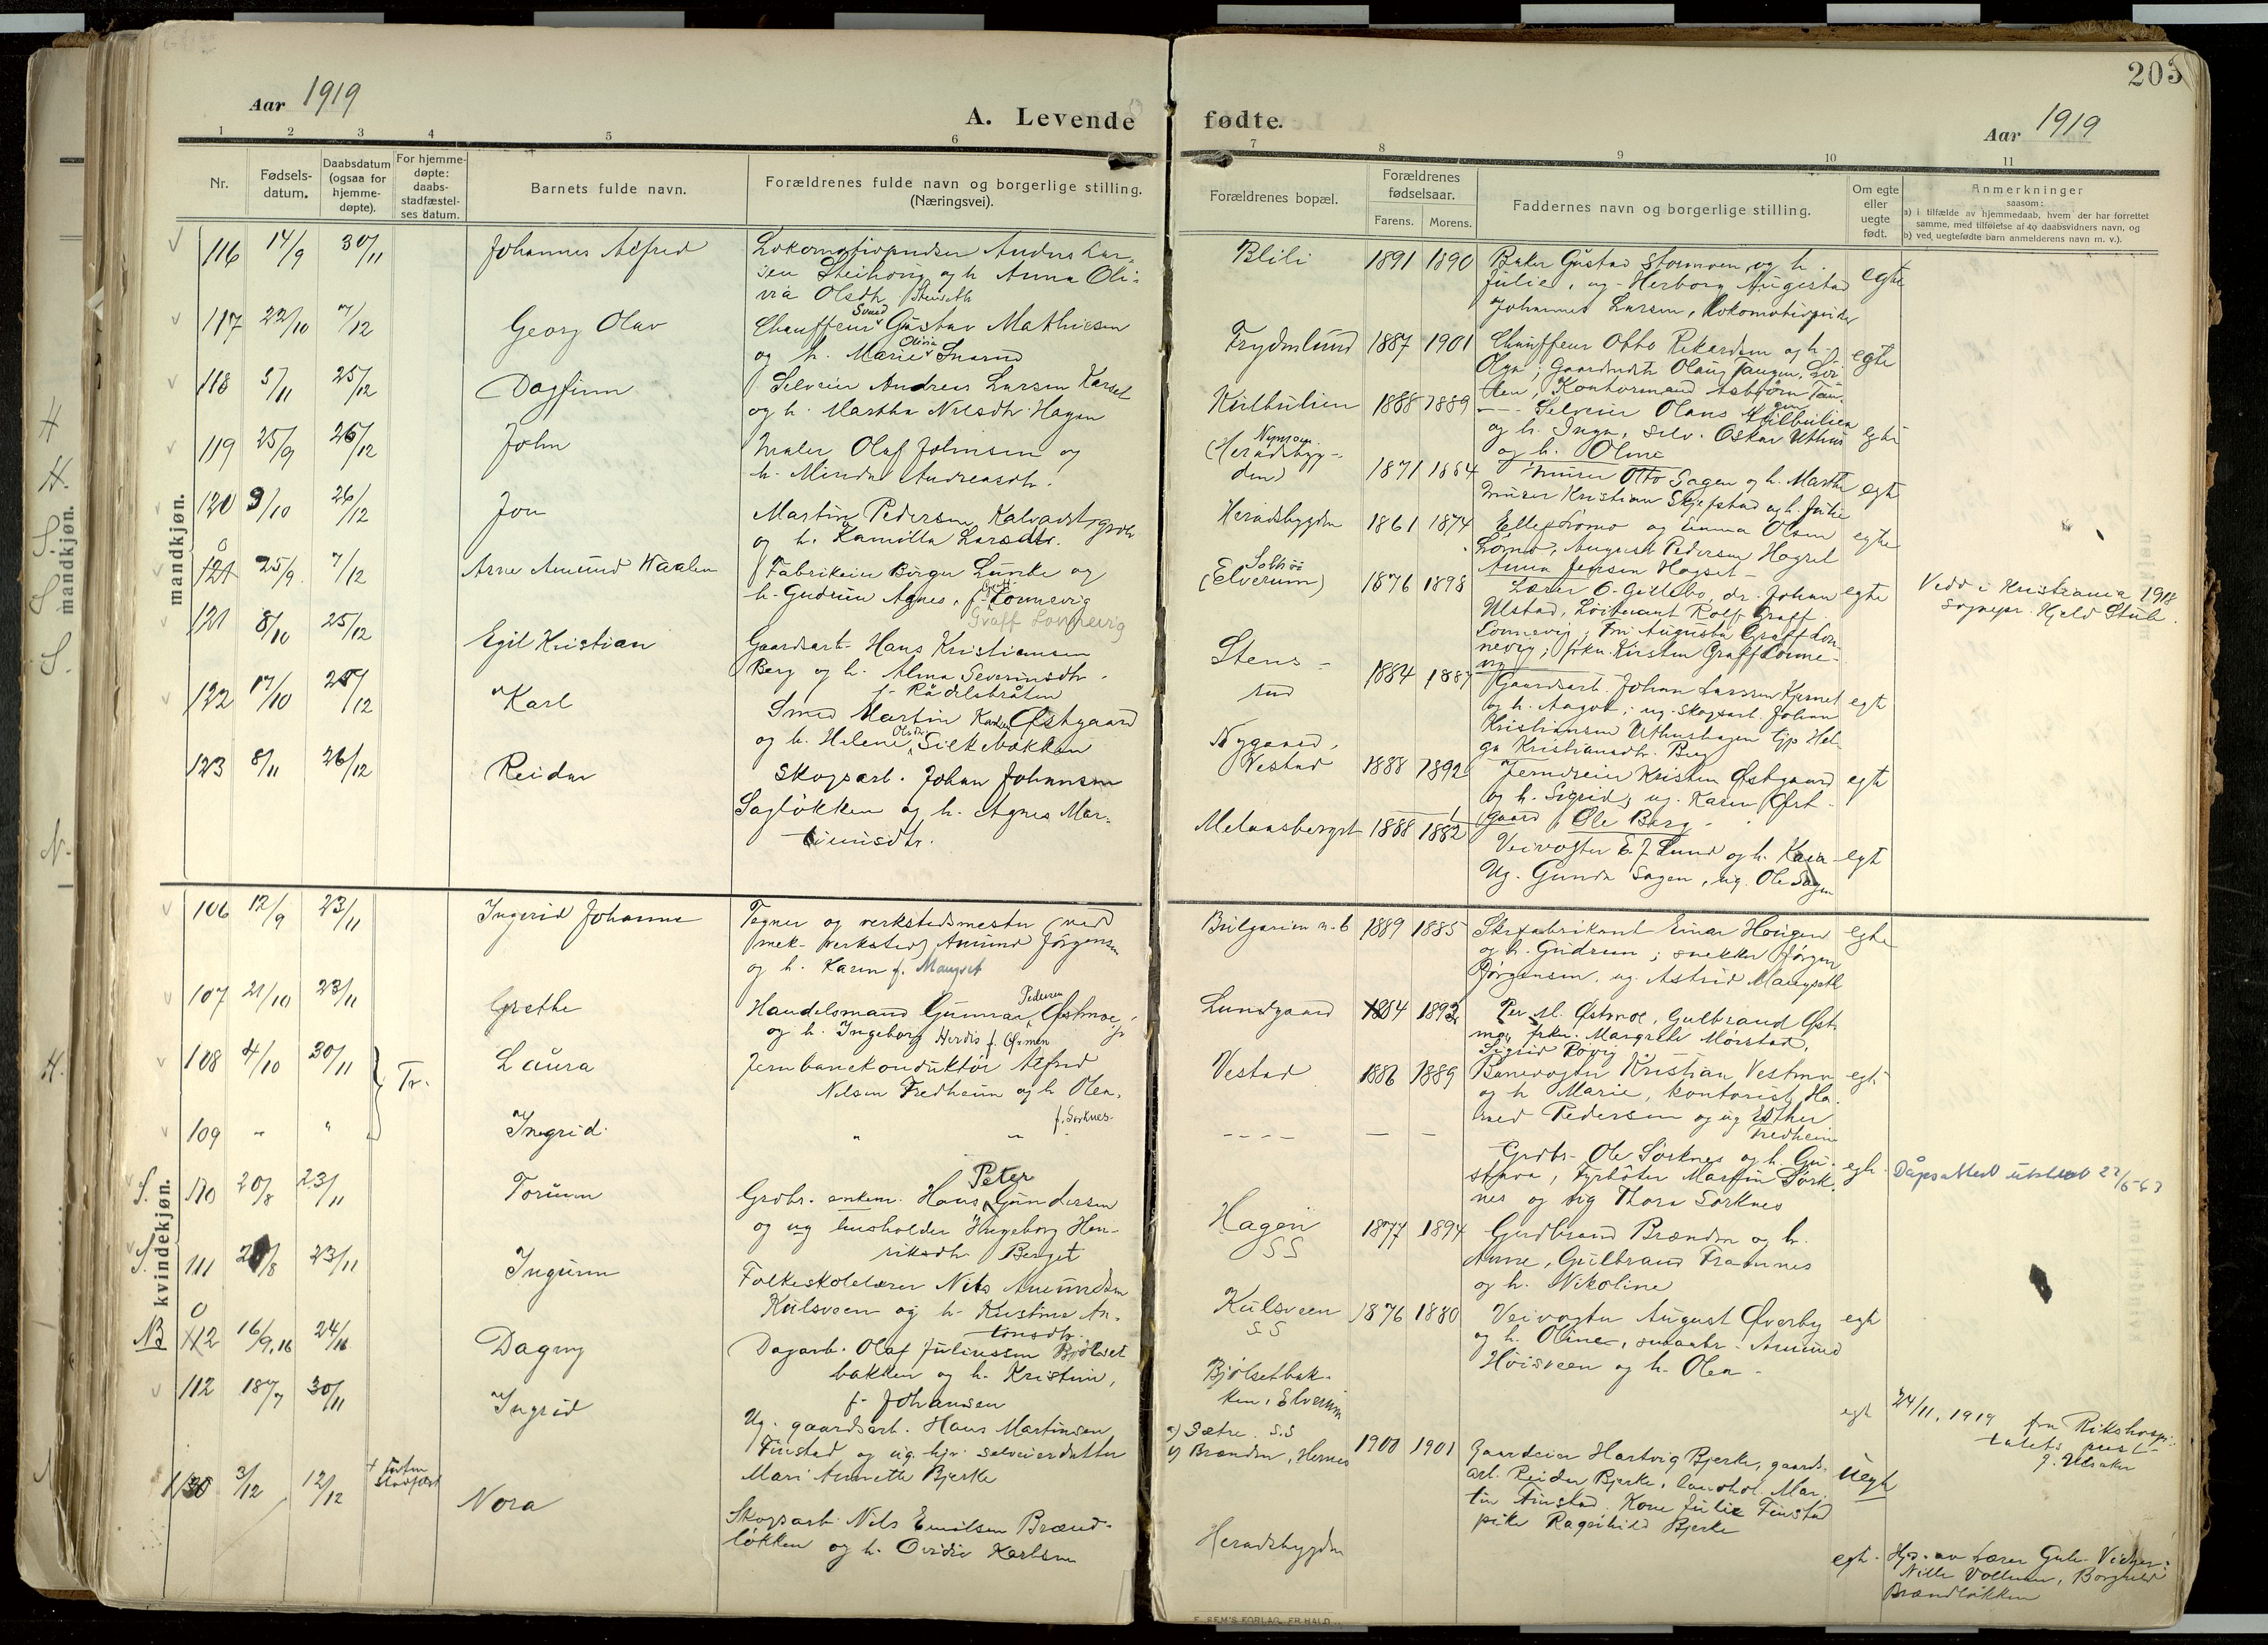 203
Aar 1919
A. Levende fødte.
Aar 1919
1 2 3 4 5 6 7 8 9 10 11
Nr.
Fødsels-
datum.
Daabsdatum
(ogsaa for
hjemme-
døpte).
For hjemme-
døpte:
daabs-
stadfæstel-
ses datum.
Barnets fulde navn.
Forældrenes fulde navn og borgerlige stilling.
(Næringsvei).
Forældrenes bopæl.
Forældrenes
fødselsaar.
Farens. Morens.
Faddernes navn og borgerlige stilling.
Om egte
eller
uegte
født.
Anmerkninger
saasom:
a) i tilfælde av hjemmedaab, hvem der har forrettet
samme, med tilføielse af to daabsvidners navn, og
b) ved uegtefødte barn anmelderens navn m. v.).
mandkjøn.
116 14/9 30/11 Johannes Alfred
Lokomotivpudser Anders Lar-
sen og h. Anna Oli-
via Olsdtr.
Blili 1891 1890
Baker Gustav Stormoen og h.
Julie, ug. Herborg Augestad
Johannes Larsen, Lokomotivpudser
egte
117 22/10 7/12 Georg Olav
Chauffeur Gustav Mathiesen
og h. Marie Olivia
Frydenlund 1887 1901
Chauffeur Otto Rikardsen og h.
Olga; Olaug Tangen,
Kontormand Asbjørn Tan-
gen
egte
118 5/11 25/12 Dagfinn
Selveier Andreas Larsen
og h. Martha Nilsdtr. Hagen
Kulbulien 1888 1889
Selveier Olaus Kulbulien
og h. Inga, selv. Oskar Uthus
og h. Oline
egte
119 25/9 26/12 John
Maler Olaf Johnsen og
h. Minda Andreasdtr.
(Heradsbyg-
den)
1871 1884
Murer Otto Sagen og h. Marthe
Murer Kristian Skjefstad og h. Julie
egte
120 9/10 26/12 Jon
Martin Pedersen Kalvadst, grbr.
og h. Kamilla Larsdtr.
Heradsbygden 1861 1874
Lømo og Emma Olsen
Lømo, August Pedersen Hagset
Anna Jensen Hagset
egte
0
121 25/9 7/12 Arne Amund Waalen
Fabrikeier Birger Lunke og
h. Gudrun Agnes, f. Lonnevig
Graff Lonnevig
(Elverum) 1876 1898
Lærer O. Gillebo, dr. Johan
Ulstad, Løitenant Rolf Graff
Lonnevig; Fru Augusta Graff Lon-
nevig; frkn. Kirsten Graff Lonne-
vig
egte
Viedd i Kristiania 1918
sognepr. Hjeld Stub.
121 8/10 25/12 Egil Kristian
Gaardsarb. Hans Kristiansen
Berg og h. Alma Severinsdtr.
f. Rådelsbråten
Stens-
rud
1884 1887
Gaardsarb. Johan Larsen Kjernet
og h. Aagot; ug. skogsarb. Johan
Kristiansen Uthushagen tjp Hel-
ga Kristiansdtr. Berg
egte
122 17/10 25/12 Karl
Smed Martin Karlsen Østgaard
og h. Helene Olsdtr. Silkebækken
Nygaard,
Vestad
1888 1892
Jerndreier Kristen Østgaard
og h. Sigrid; ug. Karen Øst-
gaard, Ole Berg
egte
123 8/11 26/12 Reidar
Skogsarb. Johan Johansen
Sagløkken og h. Agnes Mar-
tiniusdtr.
Melaasberget 1888 1882
Veivogter E. J. Lund og h. Kaia
Ug. Gunda Sagen, ug. Ole Sagen
egte
kvindekjøn.
106 12/9 23/11 Ingerid Johanne
Tegner og verkstedsmester (ved
mek. verksted) Amund Jørgensen
og h. Karen f. Maugset
Bulgarien n. 6 1889 1885
Skifabrikant Einar Hougen
og h. Gudrun; snekker Jørgen
Jørgensen, ug. Astrid Maugseth
egte
107 21/10 23/11 Grethe
Handelsmand Gunnar Pedersen Østmoe
og h. Ingeborg Herdis f. Øvmen
Lundgaard 1884 1892
Per M. Østmoe, Gulbrand Øst-
moe, frkn. Margrethe Mørstad,
Sigrid Røvig
108 4/10 30/11 Tv. Laura
Jernbanekonduktør Alfred
Nilsen Fredheim og h. Olea,
f. Sorknes
Vestad 1886 1889
Banevogter Kristian Vestmo
og h. Marie, kontorist Ha-
med Pedersen og ug. Esther
Fredheim
egte
109 - " Ingrid
" "
- - - - — —
Grdbr. Ole Sorknes og h. Gu-
stava, Fyrbøter Martin Sork-
nes og ug. Thora Sorknes
egte
Dåpsattest utstedt 22/5-63
S. 110 20/8 23/11 Torunn
Grdbr. enkem. Hans Peter Gundersen
og ug husholder Ingeborg Hen-
riksdtr. Berget
Hagen
SS
1877 1894
Gudbrand Brænden og h.
Anne, Gulbrand Framnes
og h. Nikoline
S. 111 20/8 23/11 Ingunn
Folkeskolelærer Nils Amundsen
Kulsveen og h. Kristine An-
tonsdtr.
Kulsveen
SS
1876 1880
Veivogter August Øverby
og h. Oline, smaabr. Amund
Høisveen og h. Olea
egte
NB 0
112 16/9,16 24/11 Dagny
Dagarb. Olaf Juliussen Bjølset-
bakken og h. Kristine,
f. Johansen
Bjølsetbak-
ken, Elverum
egte
24/11, 1919 fra Rikshospi-
talets prest
J. Ulsaker
112 18/7 30/11 Ingrid
Ug. gaardsarb. Hans Martinsen
Finstad og ug. hjv. selveierdatter
Mari Annette Bjerke
a) Sætre. S.S
b) Brænden, Hernes
1900 1901
Gaardeier Hartvig Bjerke, gaards-
arb. Reidar Bjerke, landhol. Mar-
tin Finstad. Kone Julie Finstad
pike Ragnhild Bjerke
Uegte
130 3/12 12/12 Nora
Skogsarb. Nils Emilsen Brænd-
løkken og h. Ovidie Karlsen
Heradsbygden
egte
Hjd. av lærer Gule. Vidner:
Nille Vollum, Borghild
Brændløkken